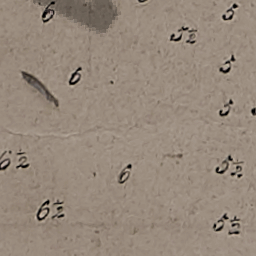 6
5
5½
5
6
5
6½
6
5½
6½
5½